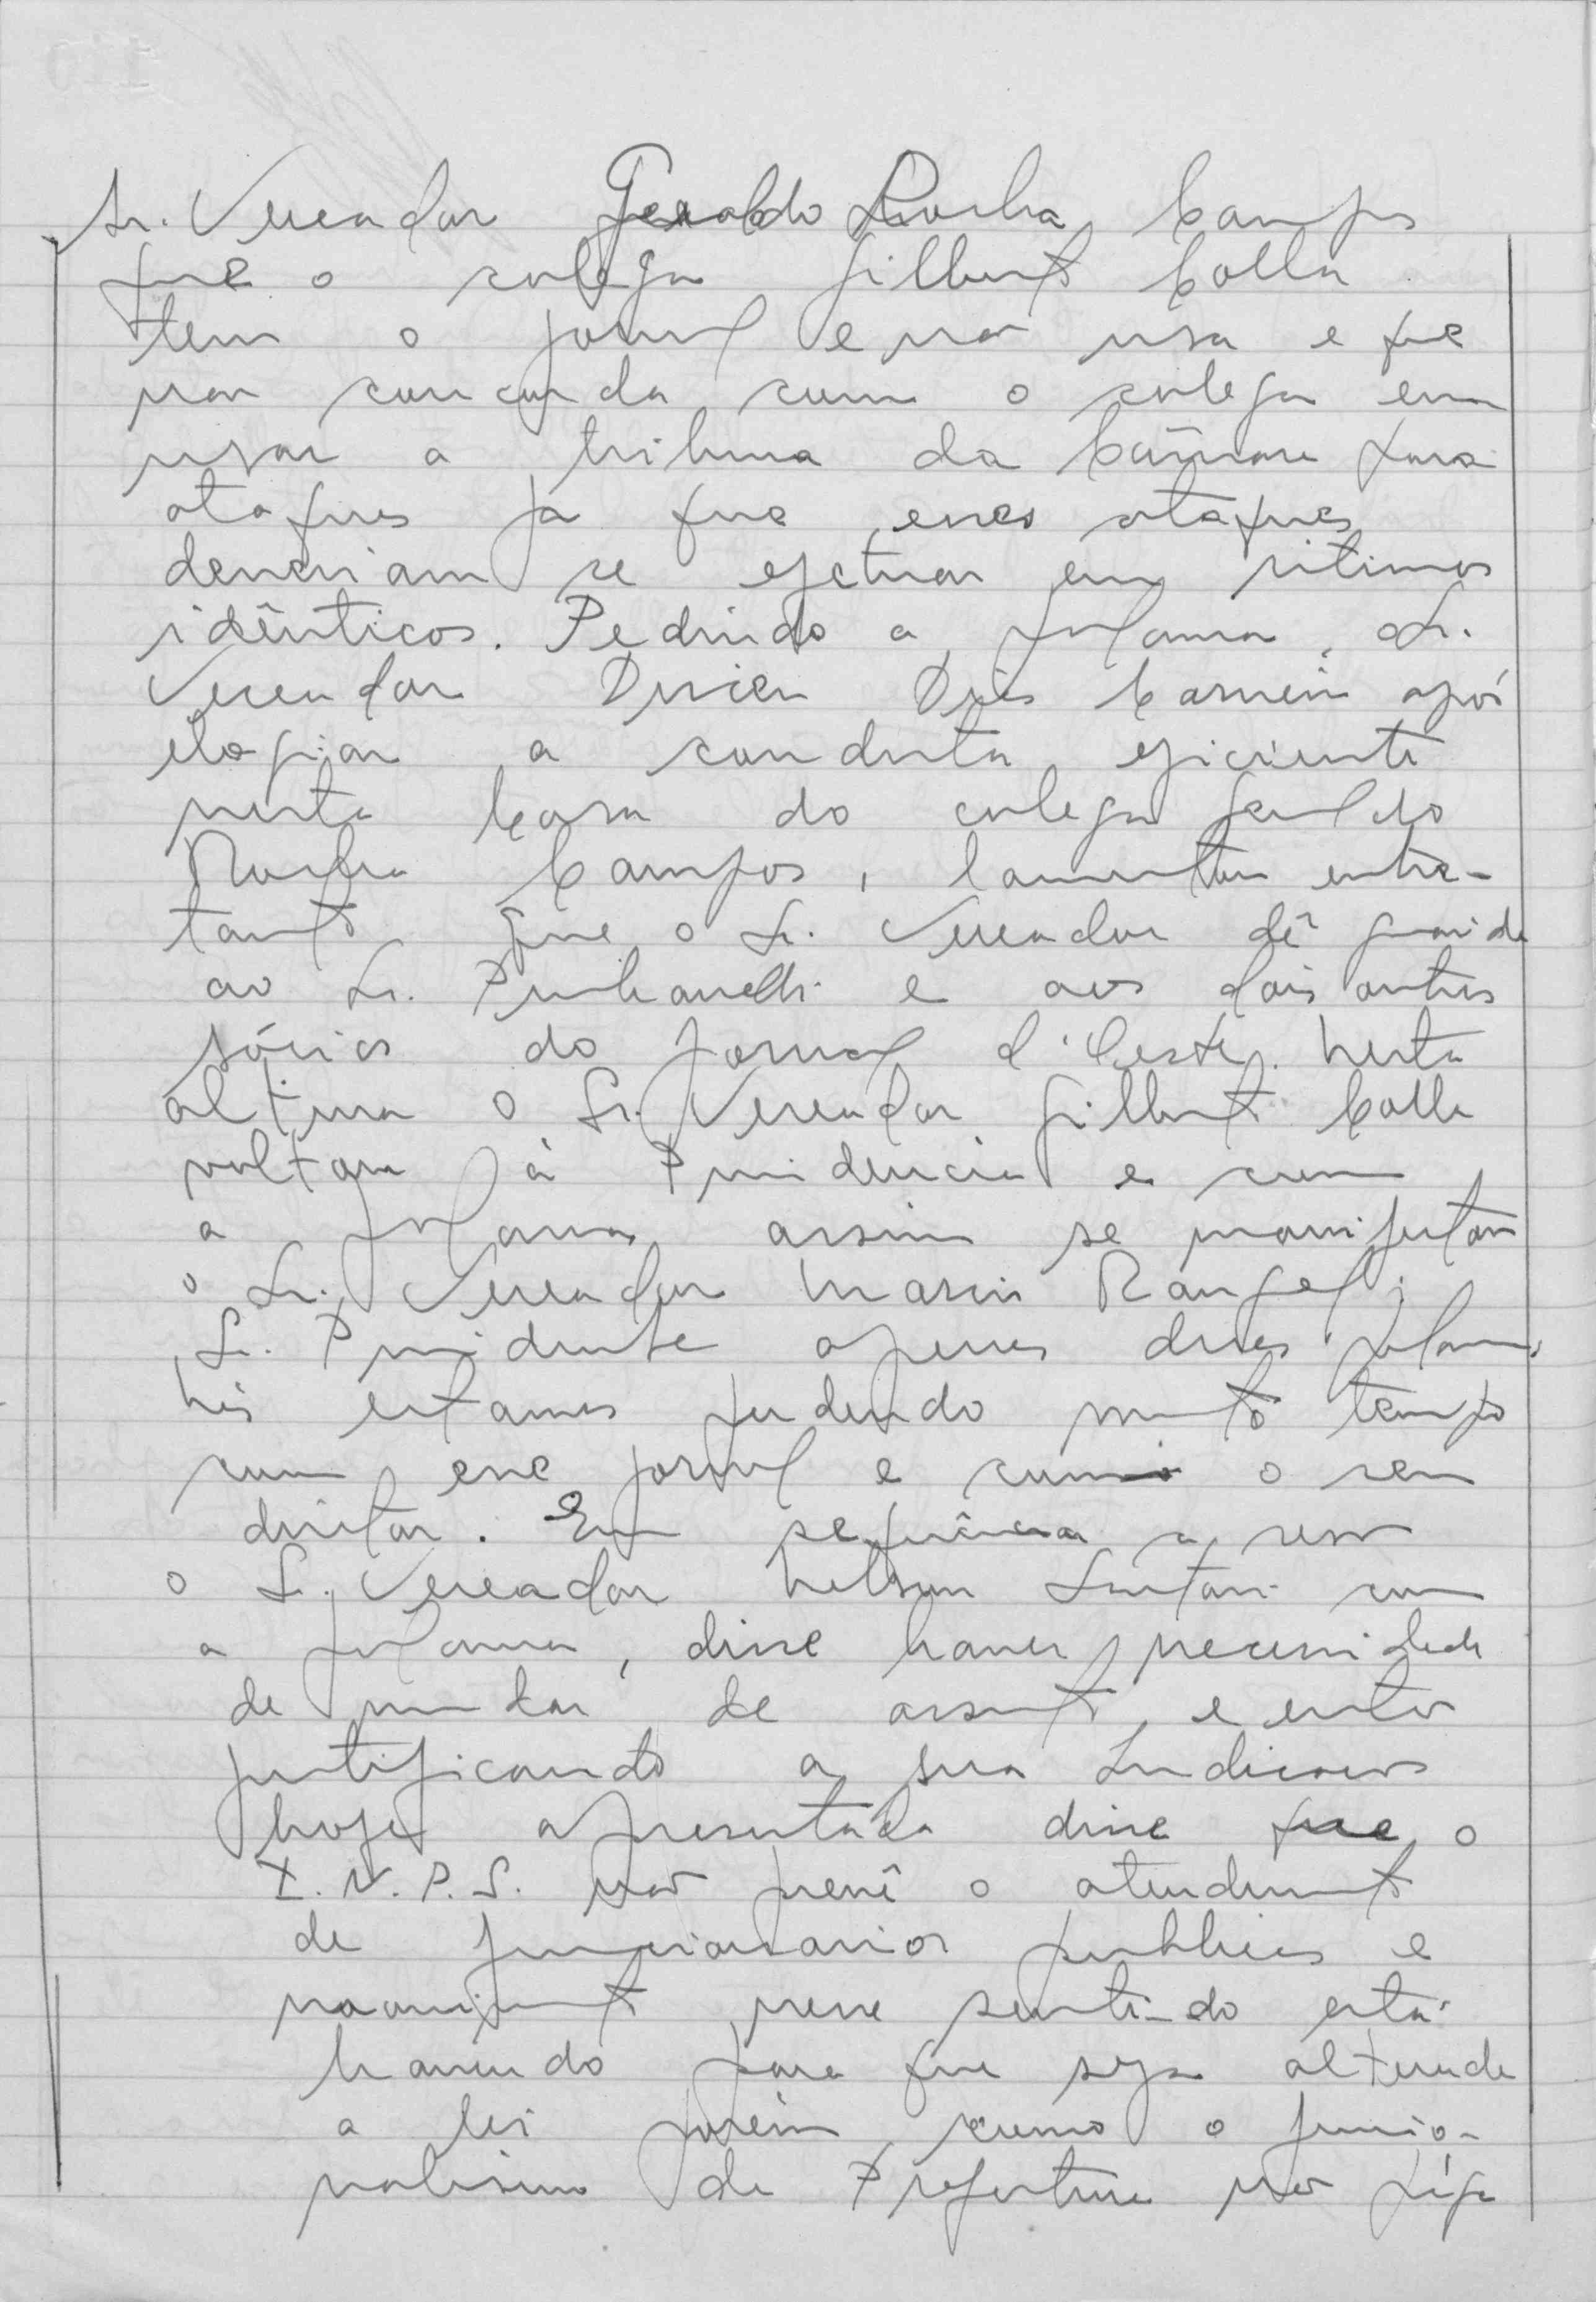 Sr. Vereador Geraldo Rocha Campos
que o colega Gilberto Colla
tem o jornal e não usa e que
não concorda com o colega em
usar a tribuna da Câmara para
ataques já que esses ataques
deveriam se efetuar em ritimos
idênticos. Pedindo a palavra o Sr.
Vereador Dirceu Dias Carneiro após
elogiar a conduta eficiente
nesta Casa do colega Geraldo
Rocha Campos, lamentou entre-
tanto que o Sr. Vereador dê guarida
ao Sr. e aos dois outros
sócios do Jornal d'Oeste. Nesta
altura o Sr. Vereador Gilberto Colla
voltou à Presidência e com
a palavra assim se manifestou
o Sr. Vereador Marcio Rangel:
Sr. Presidente apenas duas palavras
Nós estamos perdendo muito tempo
com esse jornal e com o seu
diretor. Em sequência
o Sr. Vereador Nelson com
a palavra, disse haver necessidade
de mudar de assunto e então
justificando a sua Indicação
hoje apresentada disse que o
I.N.P.S. não prevê o atendimento
de funcionarios publicos e
nesse sentido está
havendo para que seja alterada
a lei porém como o funcio-
nalismo da Prefeitura não